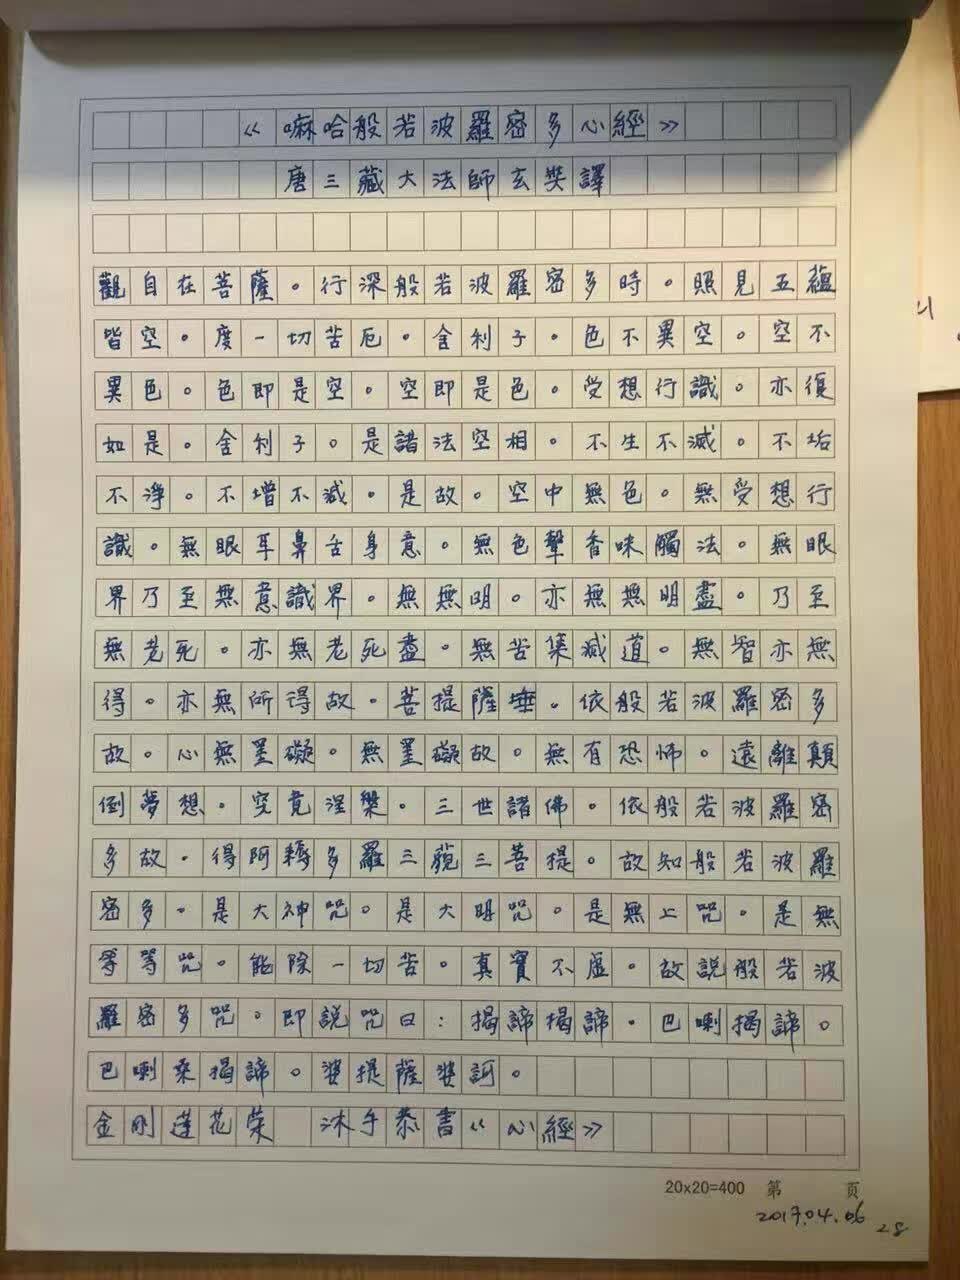 《嘛哈般若波羅密多心經》
唐三藏大法師玄奘譯
觀自在菩薩。行深般若波羅密多時。照見五蘊
皆空。度一切苦厄。舍利子。色不異空。空不
異色。色即是空。空即是色。受想行識。亦復
如是。舍利子。是諸法空相。不生不滅。不垢
不淨。不增不減。是故。空中無色。無受想行
識。無眼耳鼻舌身意。無色聲香味觸法。無眼
界乃至無意識界。無無明。亦無無明盡。乃至
無老死。亦無老死盡。無苦集滅道。無智亦無
得。亦無所得故。菩提薩埵。依般若波羅密多
故。心無罣礙。無罣礙故。無有恐怖。遠離顛
倒夢想。究竟涅槃。三世諸佛。依般若波羅密
多故。得阿耨多羅三藐三菩提。故知般若波羅
密多。是大神咒。是大明咒。是無上咒。是無
等等咒。能除一切苦。真實不虛。故說般若波
羅密多咒。即說咒曰：揭諦揭諦。巴喇揭諦。
巴喇桑揭諦。婆提薩婆訶。
金剛蓮花榮 沐手恭書《心經》
20x20=400 第 页
2017.04.06
28